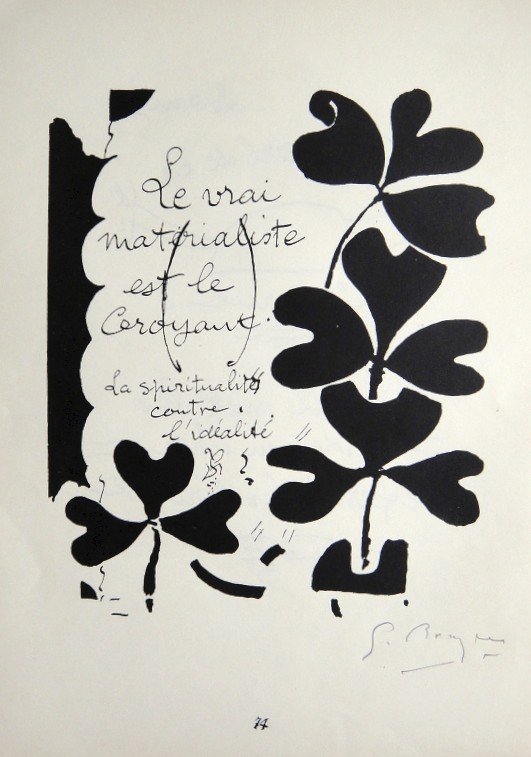 Le vrai
matérialiste
est le
Croyant.
La spiritualité
contre
l'idéalité
G. Braque
74